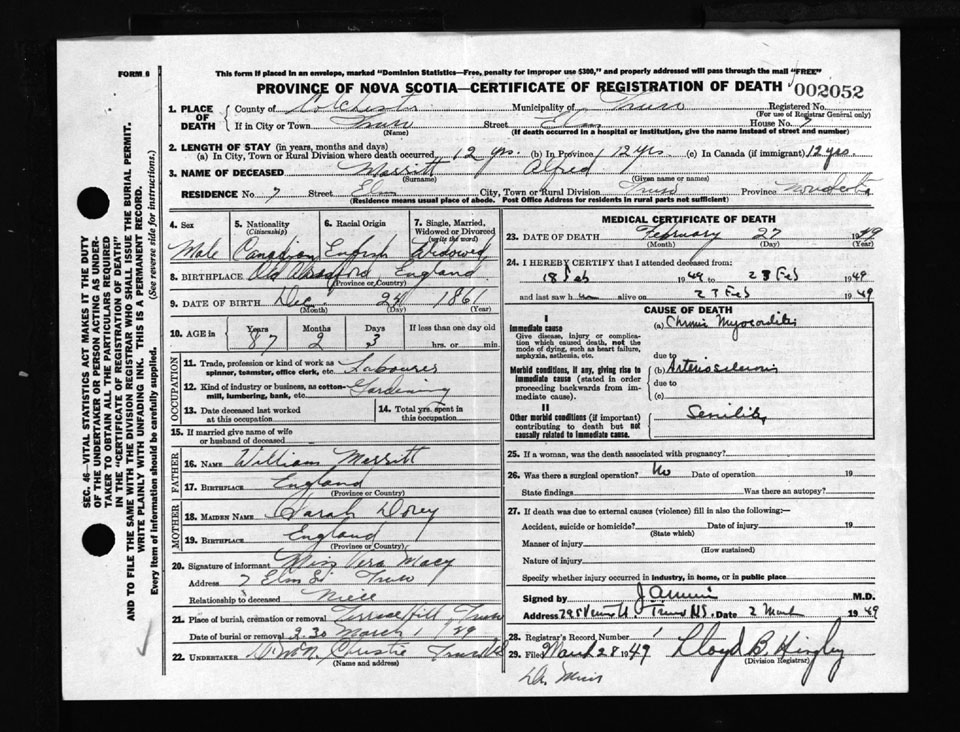 FORM 6
This form if placed in an envelope, marked "Dominion Statistics—Free, penalty for improper use $300," and properly addressed will pass through the mail "FREE"
PROVINCE OF NOVA SCOTIA—CERTIFICATE OF REGISTRATION OF DEATH
002052
1. PLACE OF DEATH
County of Colchester Municipality of Truro Registered No.
(For use of Registrar General only)
If in City or Town Truro Street Elm House No. 7
(Name) (If death occurred in a hospital or institution, give the name instead of street and number)
2. LENGTH OF STAY (in years, months and days)
(a) In City, Town or Rural Division where death occurred 12 yrs. (b) In Province 12 yrs. (c) In Canada (if immigrant) 12 yrs.
3. NAME OF DECEASED Merritt Alfred
(Surname) (Given name or names)
RESIDENCE No. 7 Street Elm City, Town or Rural Division Truro Province
(Residence means usual place of abode. Post Office Address for residents in rural parts not sufficient)
4. Sex
Male
5. Nationality
(Citizenship)
Canadian
6. Racial Origin
English
7. Single, Married, Widowed or Divorced
(write the word)
Widowed
8. BIRTHPLACE Old England
(Province or Country)
9. DATE OF BIRTH Dec 24 1861
(Month) (Day) (Year)
10. AGE in
Years Months Days If less than one day old
87 2 3 hrs. or min.
OCCUPATION
11. Trade, profession or kind of work as spinner, teamster, office clerk, etc. Labourer
12. Kind of industry or business, as cotton mill, lumbering, bank, etc. Gardening
13. Date deceased last worked at this occupation
14. Total yrs. spent in this occupation
15. If married give name of wife or husband of deceased
FATHER
16. NAME William Merritt
17. BIRTHPLACE England
(Province or Country)
MOTHER
18. MAIDEN NAME Sarah Dorey
19. BIRTHPLACE England
(Province or Country)
20. Signature of informant Miss Vera Macy
Address 7 Elm St Truro
Relationship to deceased Niece
21. Place of burial, cremation or removal Terrace Hill Truro
Date of burial or removal 2.30 March 1 / 49
22. UNDERTAKER Christie Truro NS
(Name and address)
MEDICAL CERTIFICATE OF DEATH
23. DATE OF DEATH February 27 1949
(Month) (Day) (Year)
24. I HEREBY CERTIFY that I attended deceased from:
18 Feb 1949 to 28 Feb 1949
and last saw h im alive on 23 Feb 1949
CAUSE OF DEATH
I
Immediate cause
Give disease, injury or complication which caused death, not the mode of dying, such as heart failure, asphyxia, asthenia, etc.
(a) Chronic Myocarditis
due to
Morbid conditions, if any, giving rise to immediate cause (stated in order proceeding backwards from immediate cause).
(b) Arteriosclerosis
due to
(c)
II
Other morbid conditions (if important) contributing to death but not causally related to immediate cause.
Senility
25. If a woman, was the death associated with pregnancy?
26. Was there a surgical operation? No Date of operation 19
State findings Was there an autopsy?
27. If death was due to external causes (violence) fill in also the following:—
Accident, suicide or homicide? Date of injury 19
(State which)
Manner of injury
(How sustained)
Nature of injury
Specify whether injury occurred in industry, in home, or in public place
Signed by M.D.
Address Truro NS. Date 2 March 1949
28. Registrar's Record Number 1
29. Filed March 28 1949 Lloyd B. Hingley
(Division Registrar)
SEC. 46—VITAL STATISTICS ACT MAKES IT THE DUTY
OF THE UNDERTAKER OR PERSON ACTING AS UNDERTAKER TO OBTAIN ALL THE PARTICULARS REQUIRED
IN THE "CERTIFICATE OF REGISTRATION OF DEATH"
AND TO FILE THE SAME WITH THE DIVISION REGISTRAR WHO SHALL ISSUE THE BURIAL PERMIT.
WRITE PLAINLY WITH UNFADING INK. THIS IS A PERMANENT RECORD.
Every item of information should be carefully supplied. (See reverse side for instructions.)